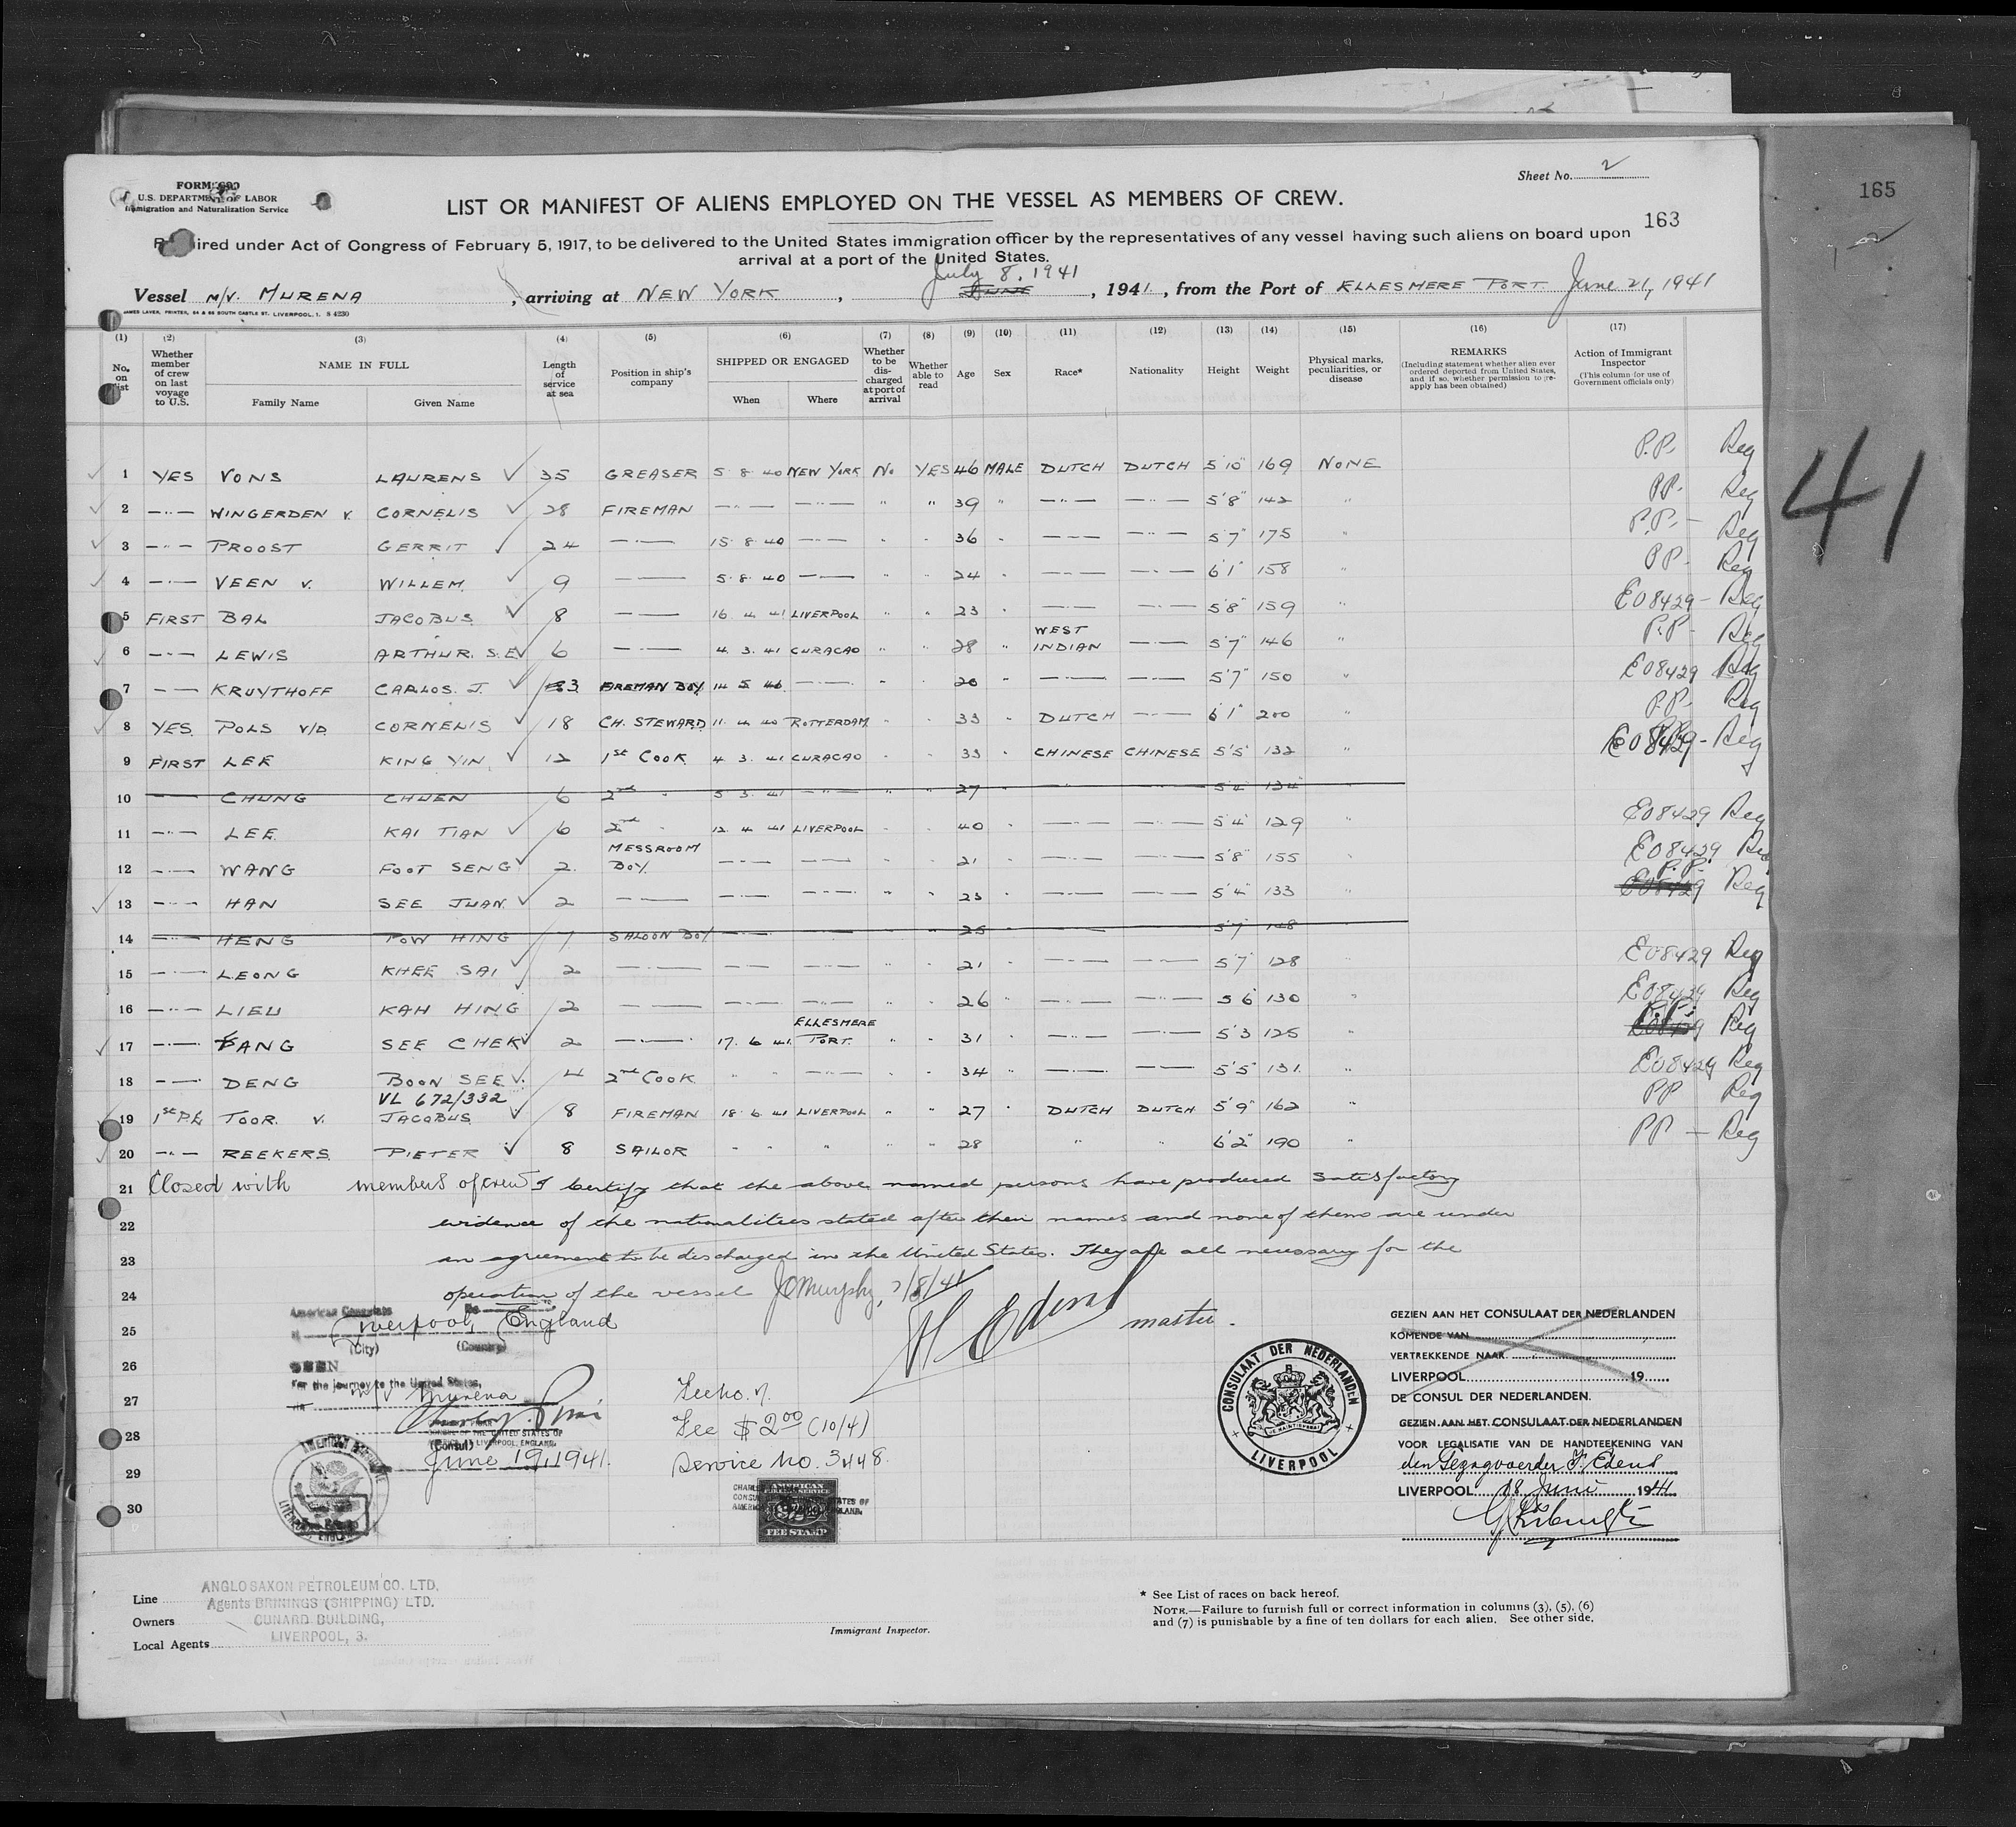 Sheet No. 2
FORM 690
U.S. DEPARTMENT OF LABOR
Immigration and Naturalization Service
LIST OR MANIFEST OF ALIENS EMPLOYED ON THE VESSEL AS MEMBERS OF CREW.
163
165
ired under Act of Congress of February 5, 1917, to be delivered to the United States immigration officer by the representatives of any vessel having such aliens on board upon
arrival at a port of the United States.
July 8, 1941
Vessel M/V. MURENA, arriving at NEW YORK, June, 1941, from the Port of ELLESMERE PORT June 21, 1941
JAMES LAVER, PRINTER, 64 & 66 SOUTH CASTLE ST. LIVERPOOL. 1. S 4230
(1) (2) (3) (4) (5) (6) (7) (8) (9) (10) (11) (12) (13) (14) (15) (16) (17)
No. on list
Whether member of crew on last voyage to U.S.
NAME IN FULL
Family Name
Given Name
Length of service at sea
Position in ship's company
SHIPPED OR ENGAGED
When
Where
Whether to be discharged at port of arrival
Whether able to read
Age
Sex
Race*
Nationality
Height
Weight
Physical marks, peculiarities, or disease
REMARKS
(Including statement whether alien ever ordered deported from United States, and if so, whether permission to re-apply has been obtained)
Action of Immigrant Inspector
(This column for use of Government officials only)
41
1 YES VONS LAURENS 35 GREASER 5 8 40 NEW YORK No YES 46 MALE DUTCH DUTCH 5'10" 169 NONE P.P. Reg
2 —"— WINGERDEN v. CORNELIS 28 FIREMAN —"— —"— " " 39 " —"— —"— 5'8" 142 " PP. Reg
3 —"— PROOST GERRIT 24 —"— 15 8 40 —"— " " 36 " —"— —"— 5'7" 175 " P.P. — Reg
4 —"— VEEN v. WILLEM 9 —"— 5 8 40 —"— " " 24 " —"— —"— 6'1" 158 " PP. Reg
5 FIRST BAL JACOBUS 8 —"— 16 4 41 LIVERPOOL " " 23 " —"— —"— 5'8" 159 " E08429 — Reg
6 —"— LEWIS ARTHUR. S.E 6 —"— 4. 3. 41 CURACAO " " 28 " WEST INDIAN —"— 5'7" 146 " P.P. Reg
7 —"— KRUYTHOFF CARLOS. J. 3 FIREMAN BOY 14 5 —"— " " 20 " —"— —"— 5'7" 150 " E08429 Reg
8 YES. POLS v/D CORNELIS 18 CH. STEWARD 11. 4 40 ROTTERDAM " " 33 " DUTCH —"— 6'1" 200 " P.P. Reg
9 FIRST LEE KING YIN 12 1st COOK 4 3. 41 CURACAO " " 33 " CHINESE CHINESE 5'5" 132 " E08429 - Reg
10 —"— CHUNG CHUEN 6 2nd " 5 3. 41 —"— " " 27 " —"— —"— 5'4" 134 "
11 —"— LEE KAI TIAN 6 2nd " 12. 4 41 LIVERPOOL " " 40 " —"— —"— 5'4" 129 " E08429 Reg
12 —"— WANG FOOT SENG 2. MESSROOM BOY. —"— —"— " " 21 " —"— —"— 5'8" 155 " E08429 Reg
13 —"— HAN SEE JUAN 2 —"— —"— —"— " " 23 " —"— —"— 5'4" 133 " P.P. E08429 Reg
14 —"— HENG POW HING 1 SALOON BOY —"— —"— " " 25 " —"— —"— 5'7" 148 "
15 —"— LEONG KHEE SAI 2 —"— —"— —"— " " 21 " —"— —"— 5'7" 128 " E08429 Reg
16 —"— LIEU KAH HING 2 —"— —"— —"— " " 26 " —"— —"— 5 6 130 " E08429 Reg
17 —"— ANG SEE CHEK 2 —"— 17. 6 41. ELLESMERE PORT. " " 31 " —"— —"— 5'3 125 " P.P. E08429 Reg
18 —"— DENG BOON SEE 4 2nd COOK " " —"— " " 34 " —"— —"— 5'5" 131. " E08429 Reg
VL 672/332
19 TOOR. v. JACOBUS 8 FIREMAN 18 6 41 LIVERPOOL " " 27 " DUTCH DUTCH 5'9" 162 " PP Reg
20 —"— REEKERS. PIETER 8 SAILOR " " " " " 28 " " 6'2" 190 " PP — Reg
21 Closed with members of crew I Certify that the above named persons have produced satisfactory
22 evidence of the nationalities stated after their names and none of them are under
23 an agreement to be discharged in the United States. They are all necessary for the
24 operation of the vessel
25
26
27
28
29
30
H Edens master.
American Consulate
Liverpool, England
(City) (Country)
SEEN
For the journey to the United States,
M/V Murena
(Consul)
June 19, 1941.
Fee $2.00 (10/4)
Service No. 3448.
AMERICAN
FEE STAMP
CONSULAAT DER NEDERLANDEN
LIVERPOOL
GEZIEN AAN HET CONSULAAT DER NEDERLANDEN
KOMENDE VAN
VERTREKKENDE NAAR
LIVERPOOL 19
DE CONSUL DER NEDERLANDEN.
GEZIEN AAN HET CONSULAAT DER NEDERLANDEN
VOOR LEGALISATIE VAN DE HANDTEEKENING VAN
den Gezagvoerder Edens
LIVERPOOL 18 Juni 1941
Line
Owners
Local Agents
ANGLO SAXON PETROLEUM CO. LTD.
Agents BRININGS (SHIPPING) LTD.
CUNARD BUILDING,
LIVERPOOL, 3.
Immigrant Inspector.
* See List of races on back hereof.
NOTE.—Failure to furnish full or correct information in columns (3), (5), (6)
and (7) is punishable by a fine of ten dollars for each alien. See other side.